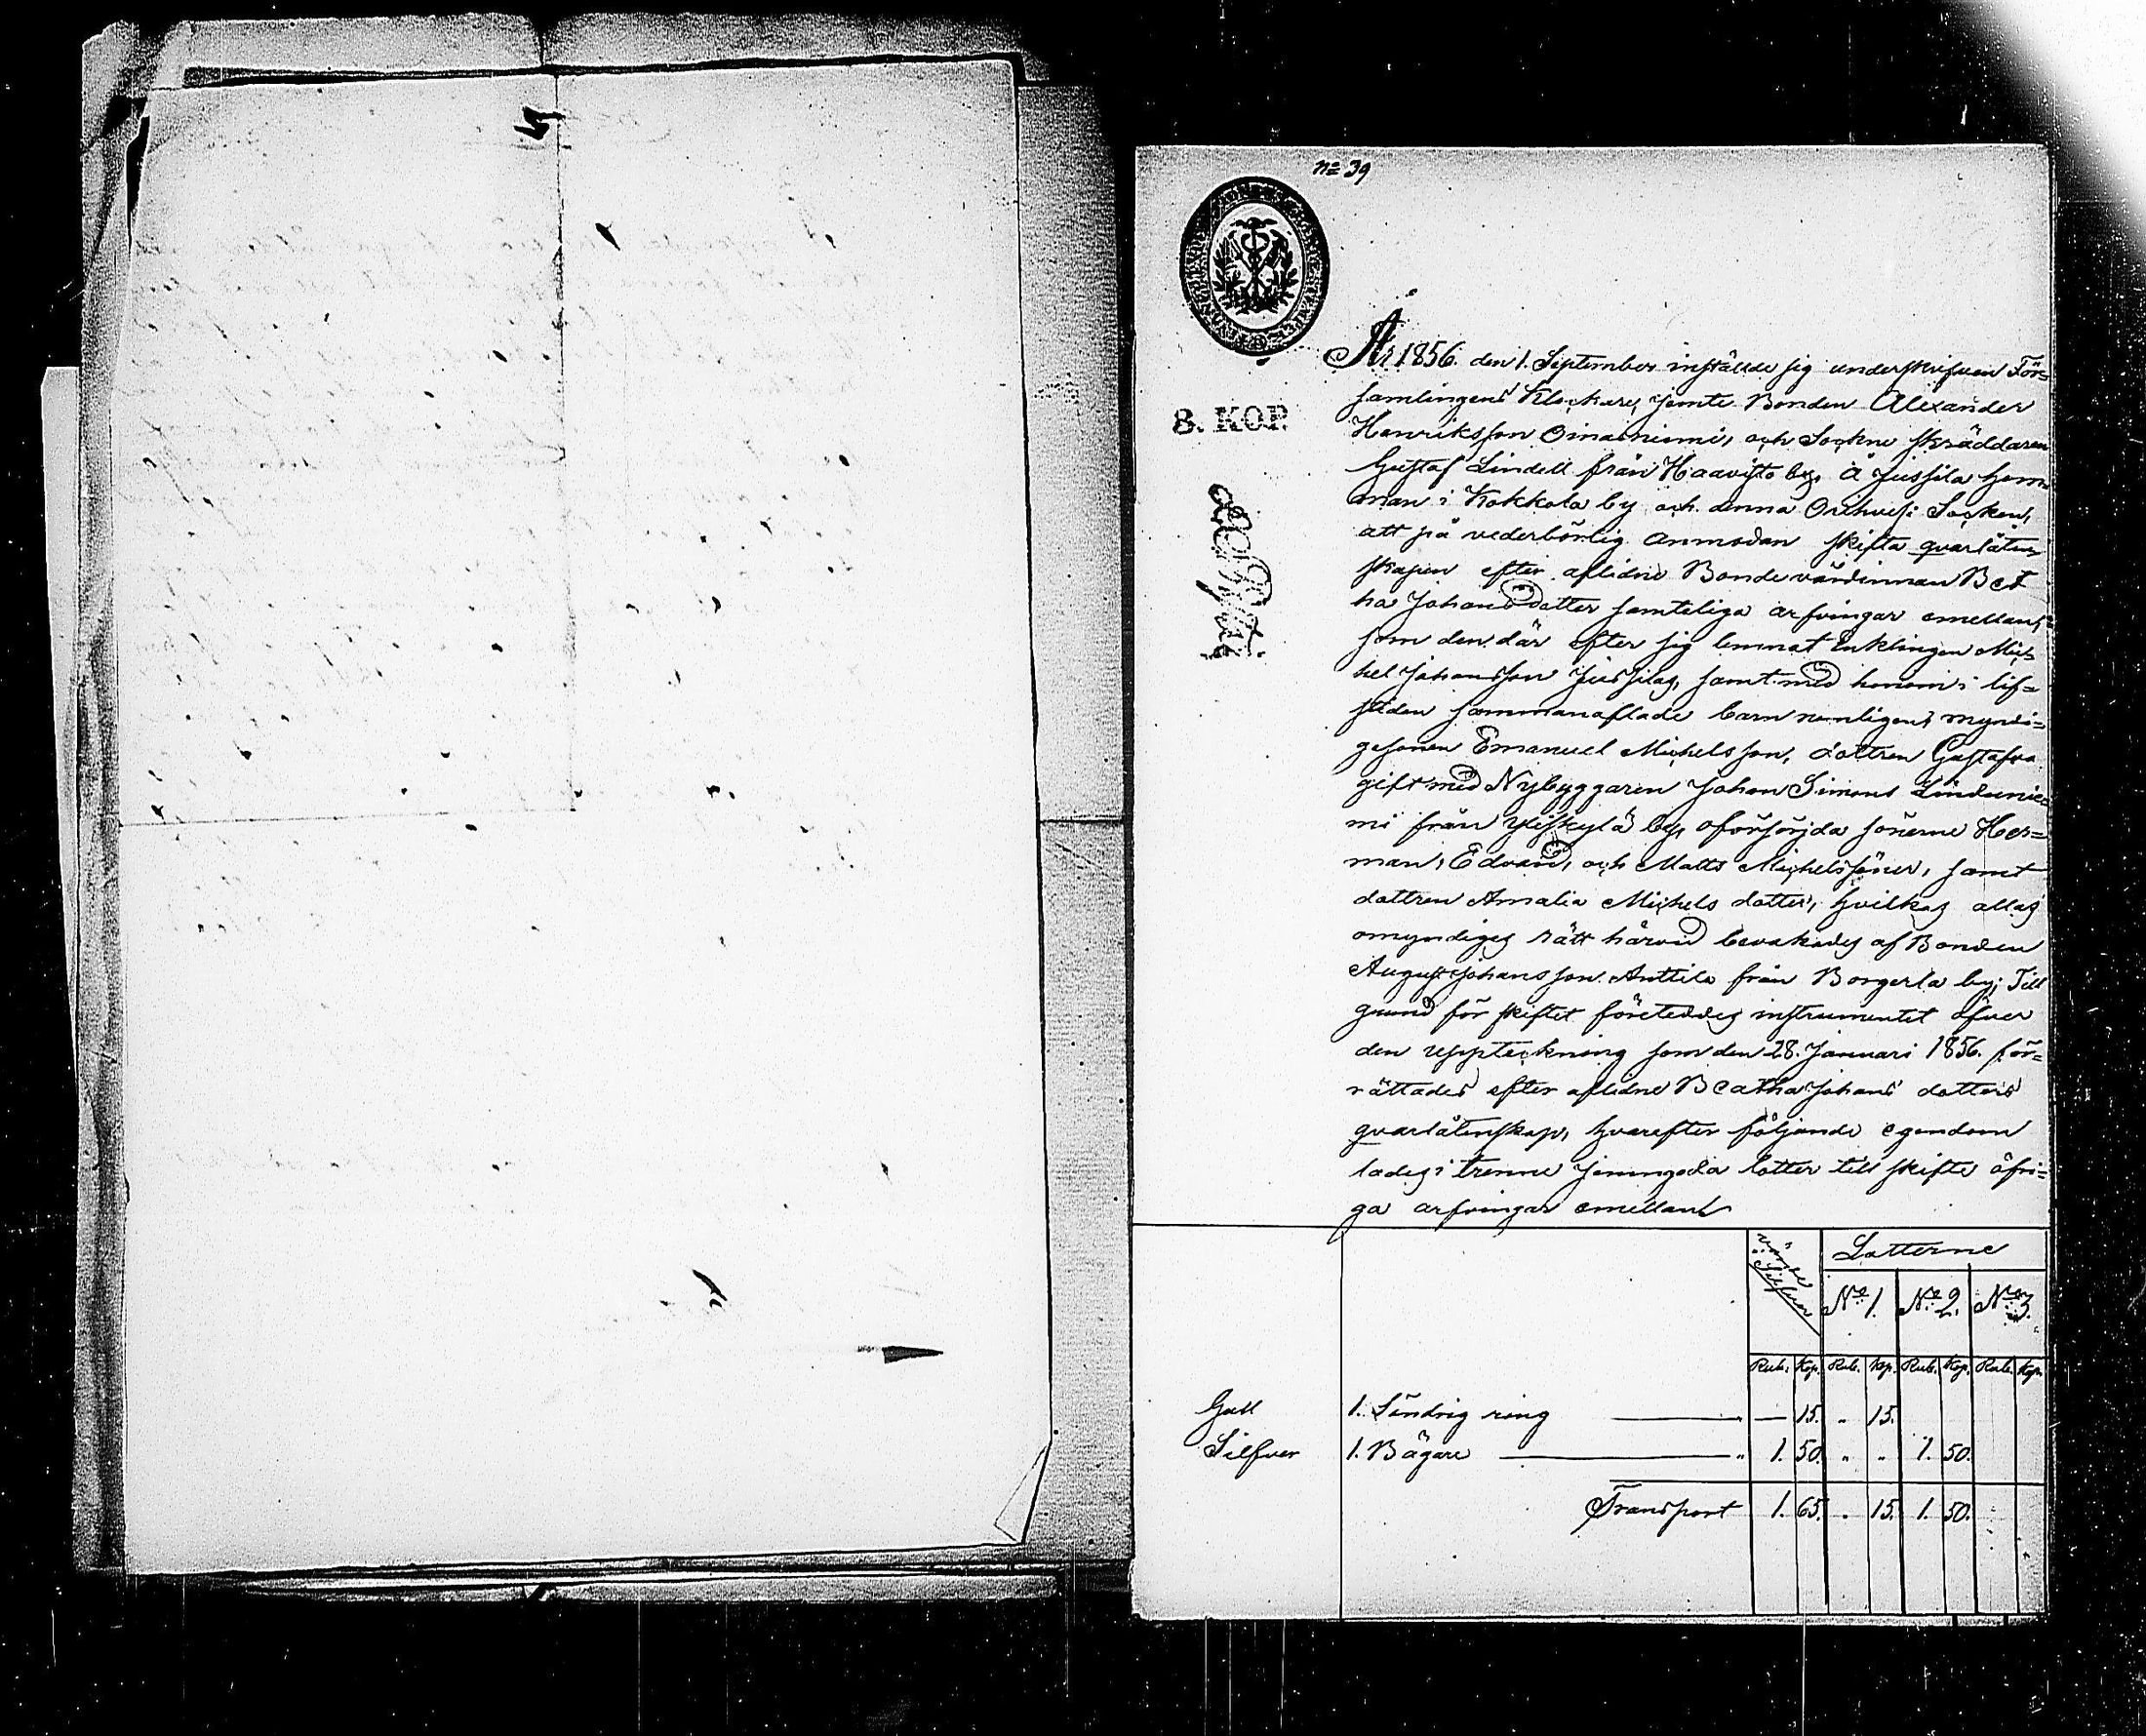 No 39
8. KOP.
År 1856. den 1. September inställde sig underskrifven För=
samlingens Klockare, jemte Bonden Alexander
Henriksson Oinasniemi, och Sockne skräddaren
Gustaf Lindell från Haavisto by, å Jussila hem=
man i Kokkola by och denna Orihvesi Socken,
att på vederbörlig anmodan skifta qvarlåten
skapen efter aflidne Bondevärdinnan Beat
ha Johansdotter samteliga arfvingar emellan,
som den där efter sig lemnat Enklingen Mic
hel Johansson Jussilas, samt med honom i lif=
stiden sammanaflade barn nemligens myndi=
gesonen Emanuel Michelsson, dottren Gustafva
gift med Nybyggaren Johan Simons Lindunie
mi från Yliskylä by, oförsörjda sönerne Her=
man, Edvard, och Matts Michelssöner, samt
dottren Amalia Michels dotter, hvilkas allas
omyndiges rätt härvid bevakades af Bonden
August Johansson Anttila från Borgerla by; Till
grund för skiftet företeddes instrumentet öfver
den uppteckning som den 28. Januari 1856. för=
rättades efter aflidne Beatha Johans dotters
qvarlåtenskap, hvarefter följande egendom
lades i trenne jemngoda lotter till skifte öfri=
ga arfvingar emellan
Silfver Lotterne
No 1. No 2. No 3.
Rub. Kop. Rub. Kop. Rub. Kop. Rub. Kop.
Gull 1. Söndrig ring " — 15. " 15.
Silfver 1. Bägare " 1. 50. " " 1. 50.
Transport 1. 65. " 15. 1. 50.